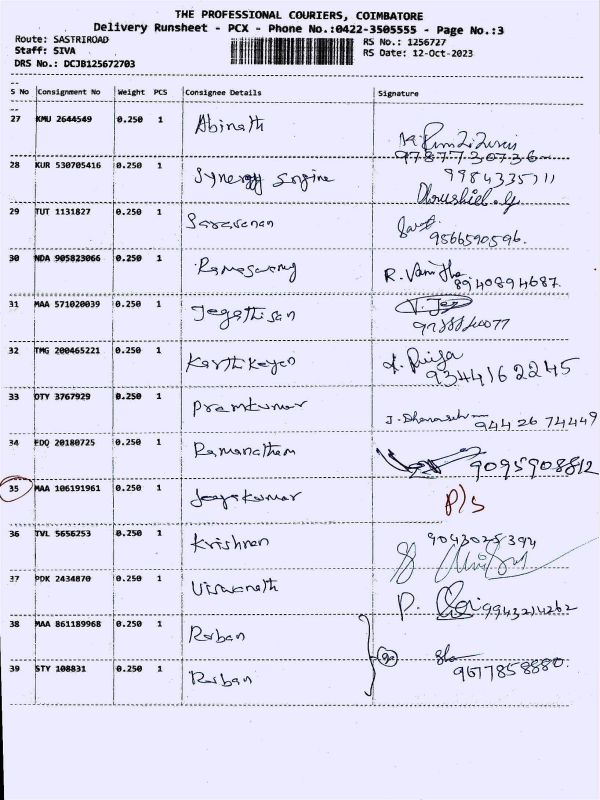 THE PROFESSIONAL COURIERS, COIMBATORE
Delivery Runsheet - PCX - Phone No.:0422-3505555 - Page No.:3
Route: SASTRIROAD RS No.: 1256727
Staff: SIVA RS Date: 12-Oct-2023
DRS No.: DCJB125672703
S No Consignment No Weight PCS Consignee Details Signature
27 KMU 2644549 0.250 1 Abinath
9787730736
28 KUR 530705416 0.250 1 Synergy Engine 9984335711
29 TUT 1131827 0.250 1 Saravanan
9566590596.
30 NDA 905823066 0.250 1 Ramaswamy R. Vanitha
8940894687.
31 MAA 571020039 0.250 1 Jegathisan V. Jag
32 TMG 200465221 0.250 1 Karthikeyan
9344162245
33 OTY 3767929 0.250 1 Premkumar
94426 74449
34 EDQ 20180725 0.250 1 Ramanathan 9095908812
35 MAA 106191961 0.250 1 Jeyakumar P/s
36 TVL 5656253 0.250 1 Krishnan 9043025394
37 PDK 2434870 0.250 1 Viswanath P. 9943214262
38 MAA 861189968 0.250 1 Rarban
39 STY 108831 0.250 1 Rarban 9677858880